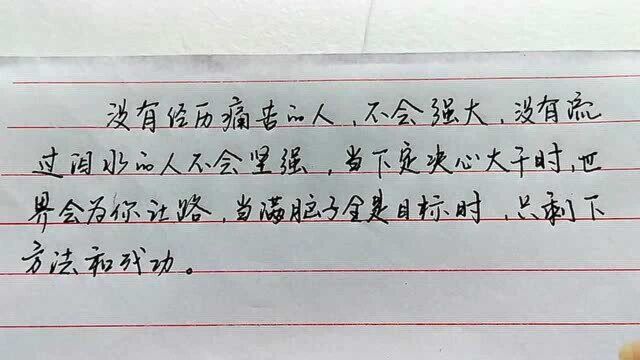 没有经历痛苦的人，不会强大，没有流
过泪水的人不会坚强，当下定决心大干时，世
界会为你让路，当满脑子全是目标时，只剩下
方法和成功。